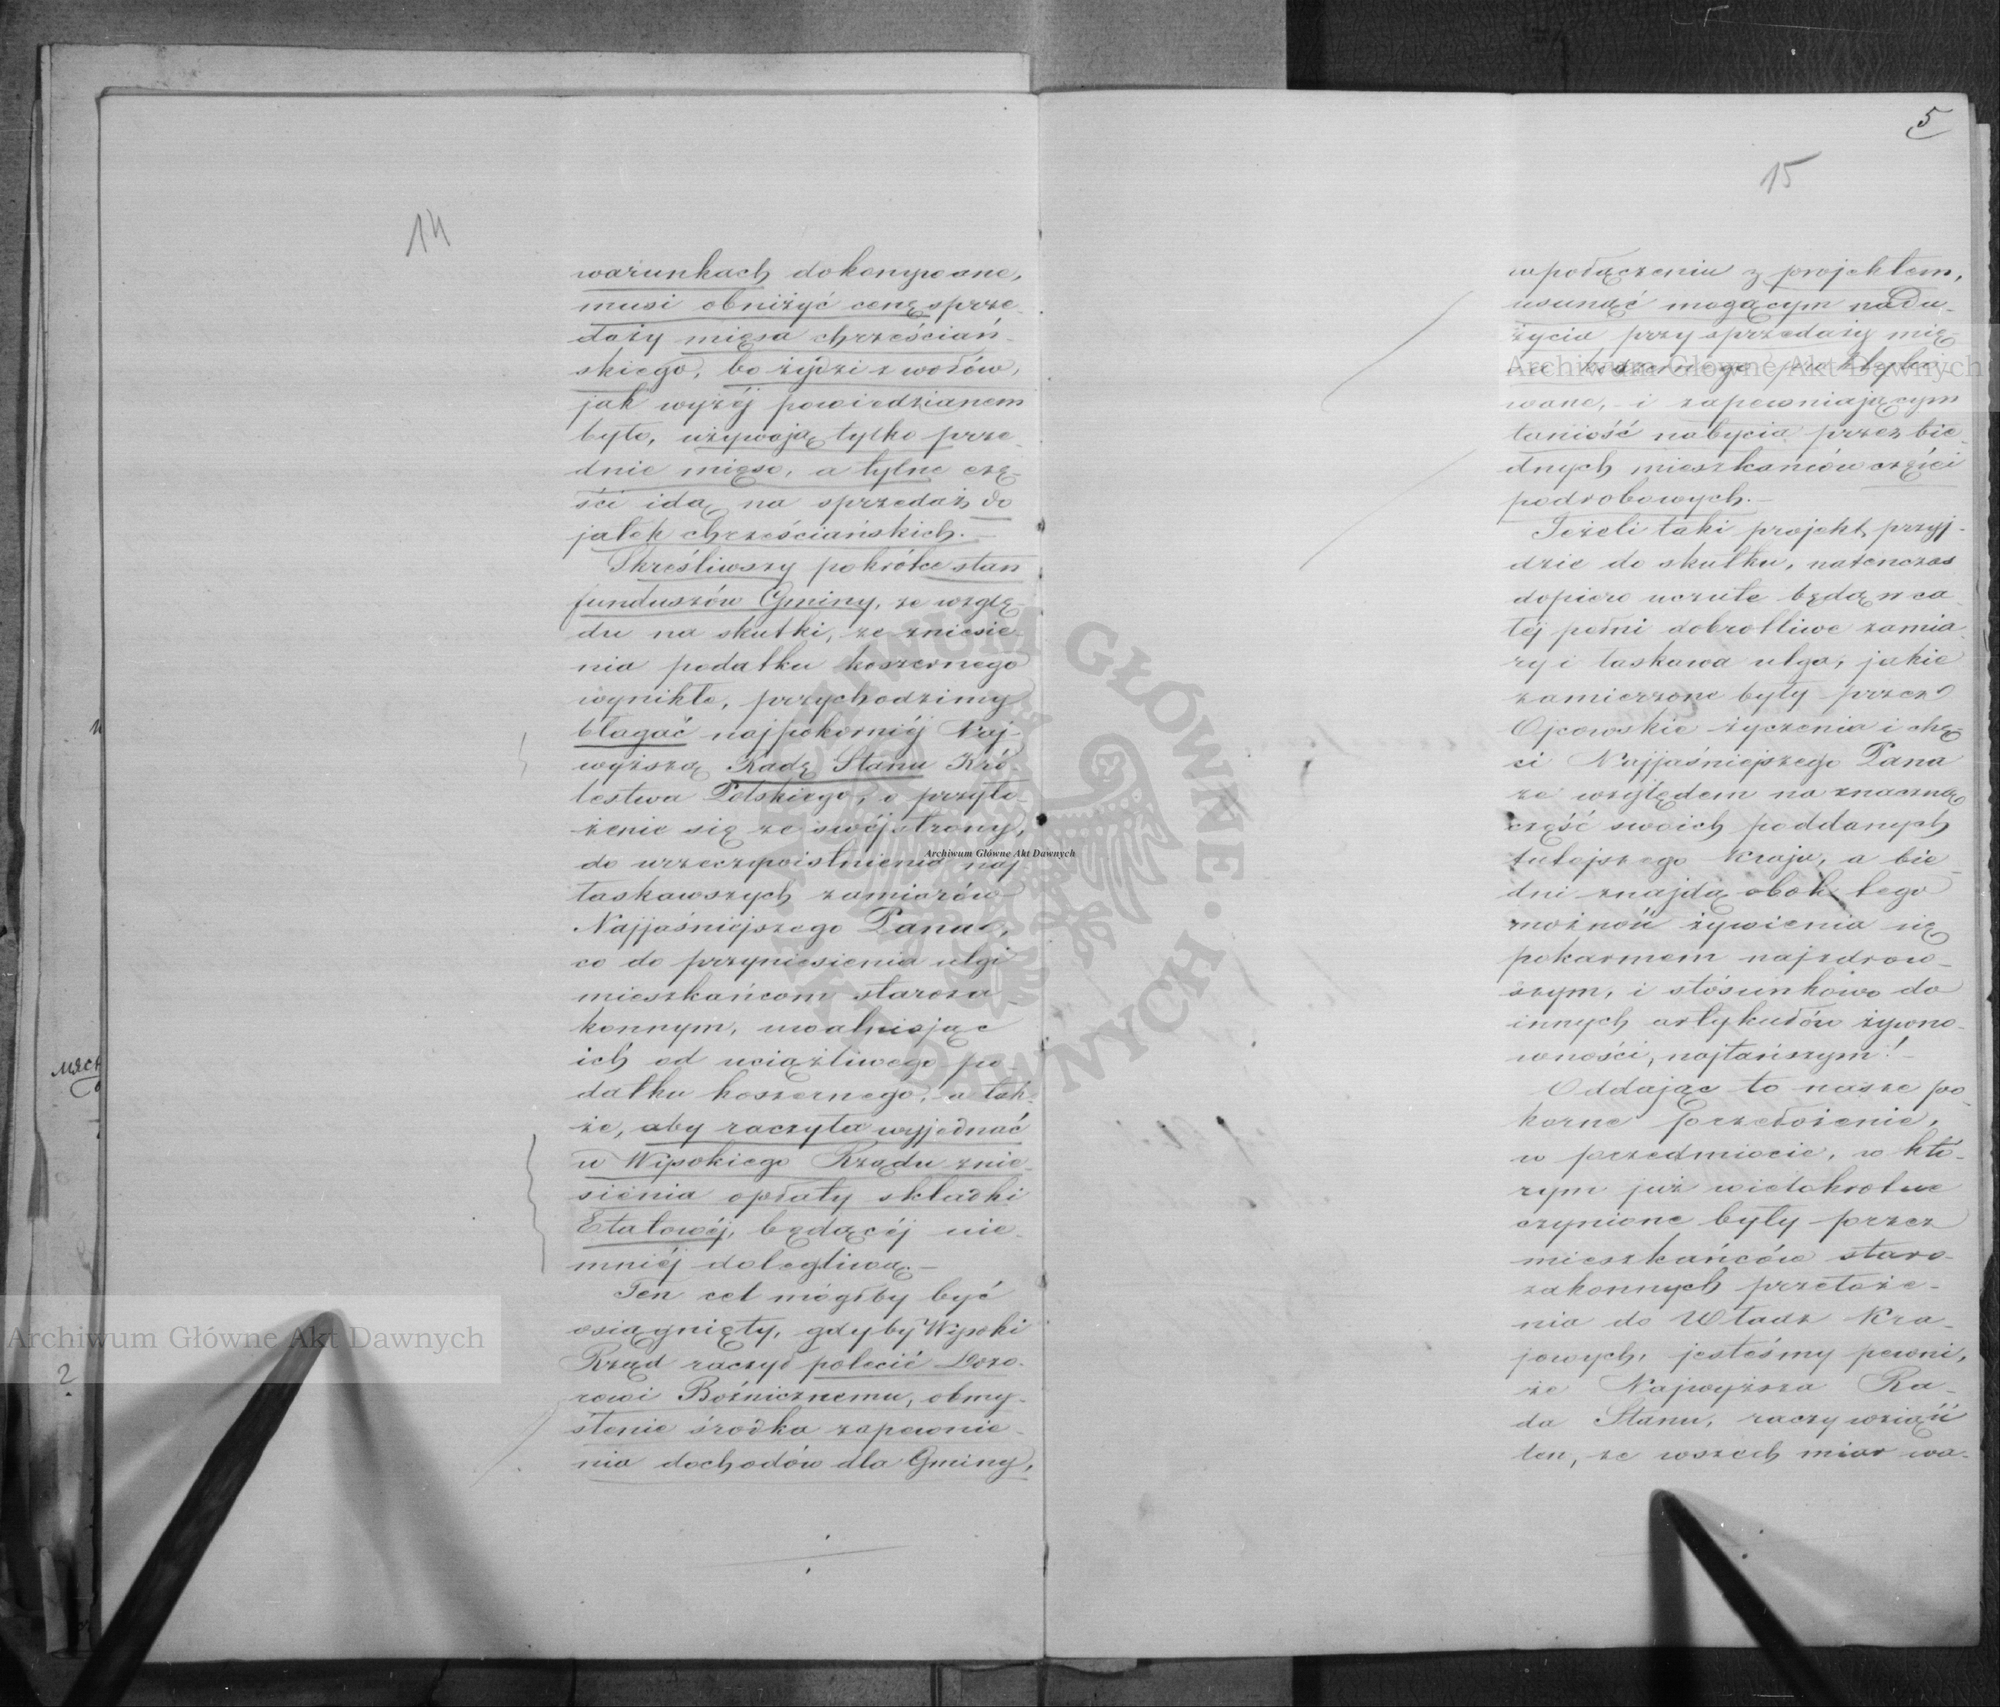 14
warunkach dokonywane,
musi obniżyć cenę sprze-
daży mięsa chrześciań-
skiego, bo żydzi z wołów,
jak wyżéj powiedzianem
było, używają tylko prze-
dnie mięso, a tylne czę-
ści idą na sprzedaż do
jatek chrześciańskich.—
Skréśliwszy pokrótce stan
funduszów Gminy, ze wzglę-
du na skutki, ze zniesie-
nia podatku koszernego
wynikłe, przychodzimy
błagać najpokorniéj Naj-
wyższą Radę Stanu Kró-
lestwa Polskiego, o przyło-
żenie się ze swéj strony,
do urzeczywistnienia naj
łaskawszych zamiarów
Najjaśniéjszego Pana,
co do przyniesienia ulgi
mieszkańcom staroza-
konnym, uwalniając
ich od uciążliwego po-
datku koszernego, a tak-
że, aby raczyła wyjednać
u Wysokiego Rządu znie-
sienia opłaty składki
Etatowéj, będącéj nie-
mniéj dolegliwą.—
Ten cel mógłby być
osiągnięty, gdyby Wysoki
Rząd raczył polecić Dozo-
rowi Bóźnicznemu, obmy-
ślenie środka zapewnie-
nia dochodów dla Gminy,
5
15
w połączeniu z projektem,
usunąć mogącym nadu-
życia przy sprzedaży mię-
sa koszernego praktyko-
wane, i zapewniającym
taniość nabycia przez bie-
dnych mieszkańców części
podrobowych.—
Jeżeli taki projekt przyj-
dzie do skutku, natenczas
dopiero uczute będą w ca-
łéj pełni dobrotliwe zamia-
ry i łaskawa ulga, jakie
zamierzone były przez
Ojcowskie życzenia i chę-
ci Najjaśniejszego Pana
ze względem na znaczną
część swoich poddanych
tutejszego kraju, a bie-
dni znajdą obok tego
możność żywienia się
pokarmem najzdrow-
szym, i stósunkowo do
innych artykułów żywno-
wności, najtańszym!—
Oddając to nasze po-
korne przełożenie,
w przedmiocie, w któ-
rym już wielokrotne
czynione były przez
mieszkańców staro-
zakonnych przełoże-
nia do Władz Kra-
jowych, jesteśmy pewni,
że Najwyższa Ra-
da Stanu, raczy wziąść
ten, ze wszech miar wa-
мяса
?
Archiwum Główne Akt Dawnych
Archiwum Główne Akt Dawnych
Archiwum Główne Akt Dawnych
ARCHIWUM GŁÓWNE AKT DAWNYCH